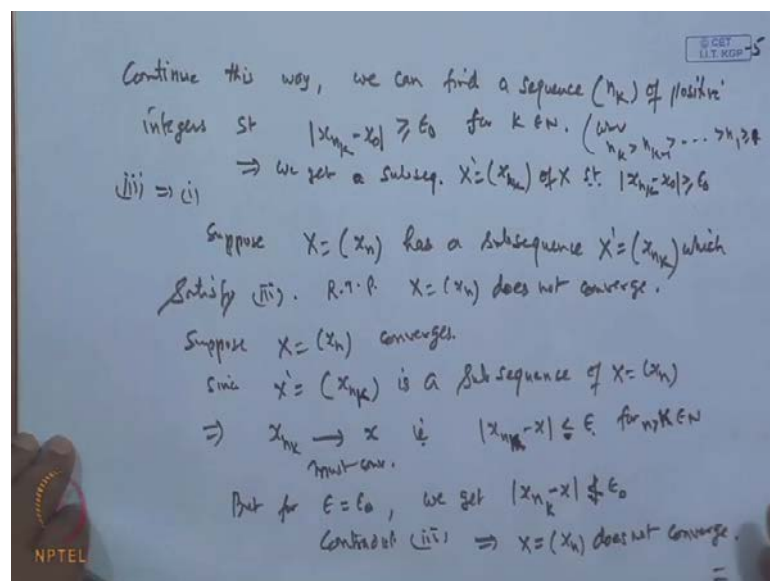 © CET
I.I.T. KGP
-5
Continue this way, we can find a sequence (n_k) of positive
integers st |x_{n_k} - x_0| ≥ ε_0 for k ∈ N. (
n_k > n_{k-1} > .... > n_1 ≥
⇒ we get a subseq. X' = (x_{n_k}) of X st. |x_{n_k} - x_0| ≥ ε_0
(iii) ⇒ (i)
Suppose X = (x_n) has a subsequence X' = (x_{n_k}) which
Satisfy (iii). R.T.P. X = (x_n) does not converge.
Suppose X = (x_n) converges.
Since X' = (x_{n_k}) is a Subsequence of X = (x_n)
⇒ x_{n_k} → x ie |x_{n_k} - x| < ε for n, K ∈ N
must conv.
But for ε = ε_0, we get |x_{n_k} - x| ≮ ε_0
(iii) ⇒ X = (x_n) does not converge.
NPTEL